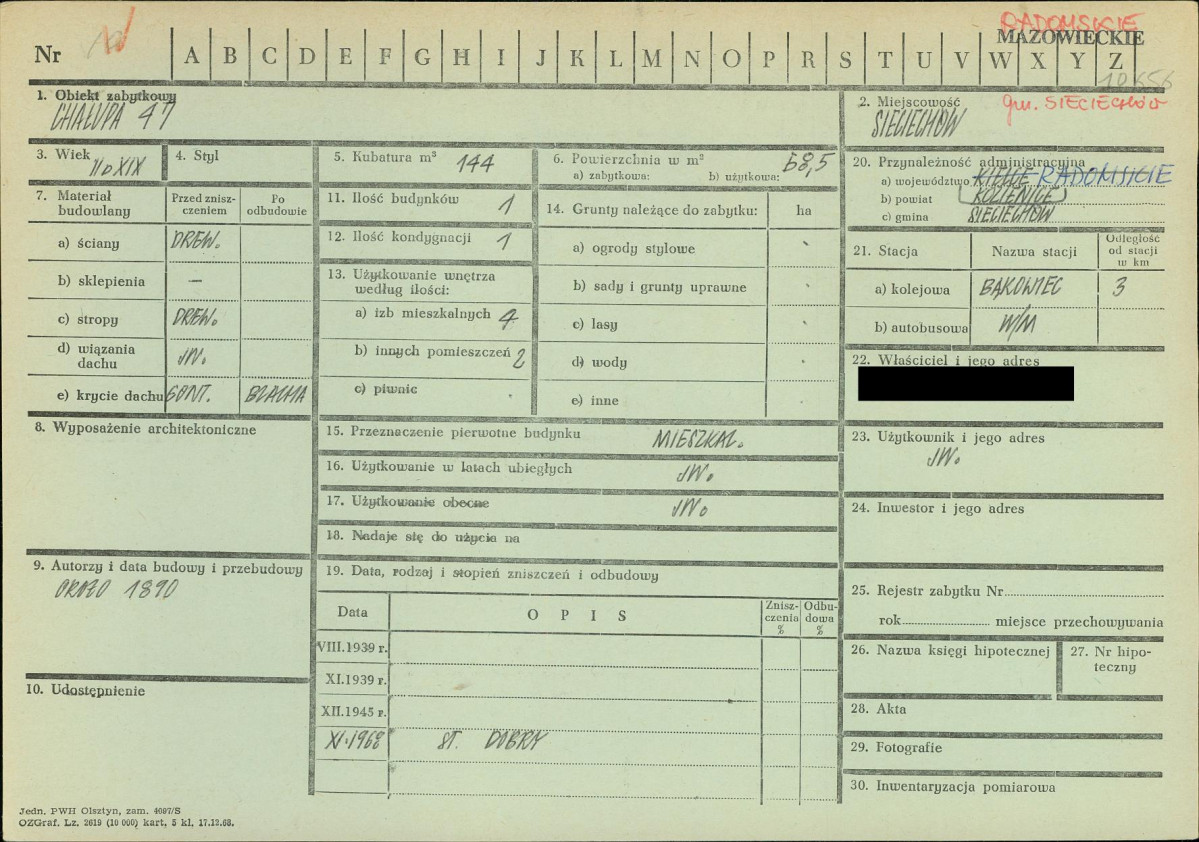 RADOMSKIE
MAZOWIECKIE
Nr
A B C D E F G H I J K L M N O P R S T U V W X Y Z
10656
1. Obiekt zabytkowy
CHAŁUPA 47
2. Miejscowość
gm. SIECIECHÓW
SIECIECHÓW
3. Wiek
II p XIX
4. Styl
5. Kubatura m³ 144
6. Powierzchnia w m²
a) zabytkowa: b) użytkowa: 58,5
7. Materiał budowlany
Przed zniszczeniem
Po odbudowie
a) ściany DREW.
b) sklepienia —
c) stropy DREW.
d) wiązania dachu JW.
e) krycie dachu GONT. BLACHA
8. Wyposażenie architektoniczne
9. Autorzy i data budowy i przebudowy
OKOŁO 1890
10. Udostępnienie
11. Ilość budynków 1
12. Ilość kondygnacji 1
13. Użytkowanie wnętrza
według ilości:
a) izb mieszkalnych 4
b) innych pomieszczeń 2
c) piwnic
14. Grunty należące do zabytku: ha
a) ogrody stylowe
b) sady i grunty uprawne
c) lasy
d) wody
e) inne
15. Przeznaczenie pierwotne budynku MIESZKAL.
16. Użytkowanie w latach ubiegłych JW.
17. Użytkowanie obecne JW.
18. Nadaje się do użycia na
19. Data, rodzaj i stopień zniszczeń i odbudowy
Data OPIS Zniszczenia % Odbudowa %
VIII.1939 r.
XI.1939 r.
XII.1945 r.
XI.1968 ST. DOBRY
20. Przynależność administracyjna
a) województwo KIELCE RADOMSKIE
b) powiat KOZIENICE
c) gmina SIECIECHÓW
21. Stacja Nazwa stacji Odległość od stacji w km
a) kolejowa BĄKOWIEC 3
b) autobusowa W/M
22. Właściciel i jego adres
23. Użytkownik i jego adres
JW.
24. Inwestor i jego adres
25. Rejestr zabytku Nr
rok miejsce przechowywania
26. Nazwa księgi hipotecznej
27. Nr hipoteczny
28. Akta
29. Fotografie
30. Inwentaryzacja pomiarowa
Jedn. PWH Olsztyn, zam. 4097/S
OZGraf. Lz. 2619 (10 000) kart. 5 kl. 17.12.68.